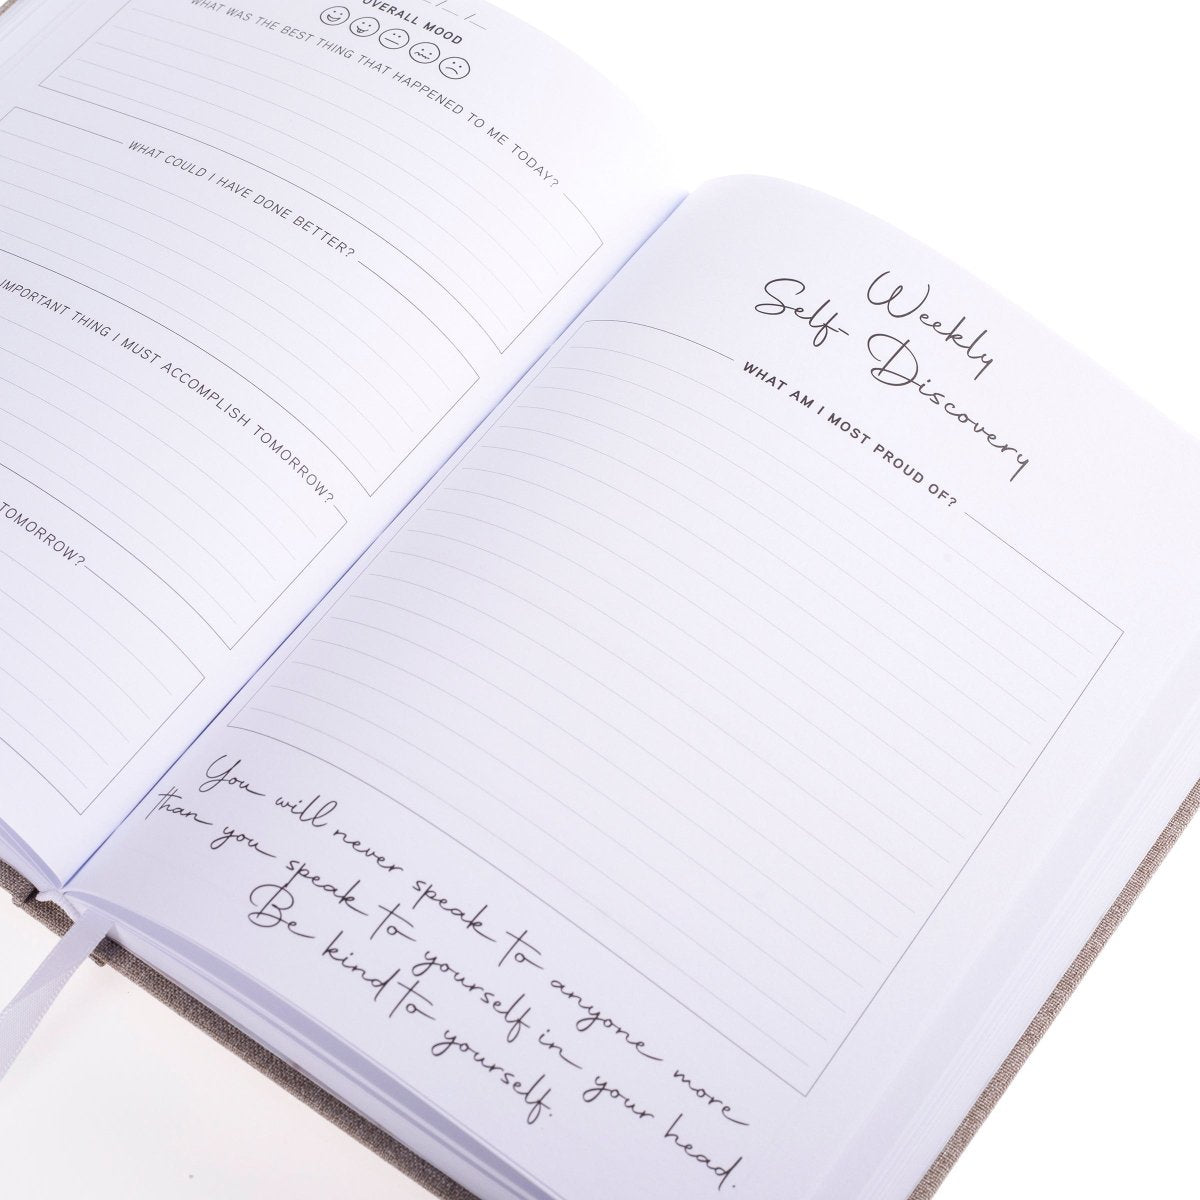 __/__/__
OVERALL MOOD
WHAT WAS THE BEST THING THAT HAPPENED TO ME TODAY?
WHAT COULD I HAVE DONE BETTER?
IMPORTANT THING I MUST ACCOMPLISH TOMORROW?
TOMORROW?
Weekly
Self-Discovery
WHAT AM I MOST PROUD OF?
You will never speak to anyone more
than you speak to yourself in your head.
Be kind to yourself.